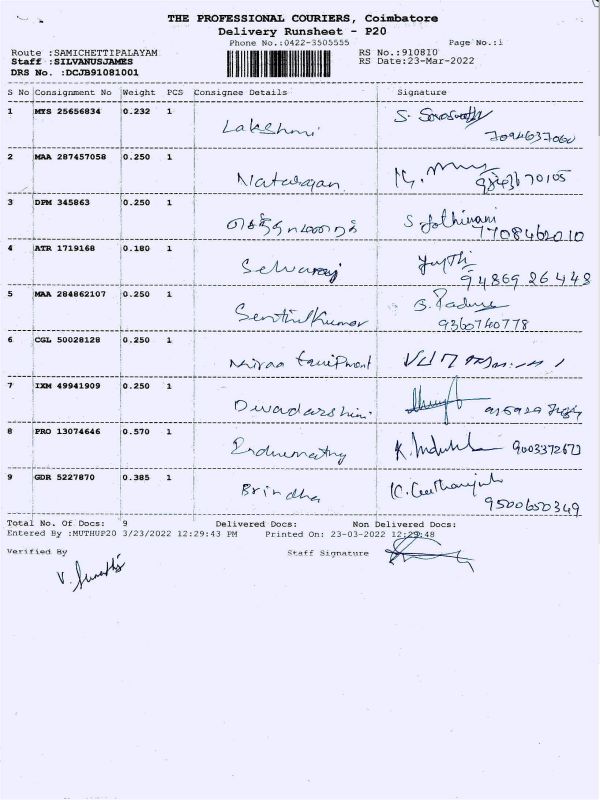 THE PROFESSIONAL COURIERS, Coimbatore
Delivery Runsheet - P20
Phone No.:0422-3505555 Page No.:1
Route :SAMICHETTIPALAYAM RS No.:910810
Staff :SILVANUSJAMES RS Date:23-Mar-2022
DRS No. :DCJB91081001
S No Consignment No Weight PCS Consignee Details Signature
1 MYS 25656834 0.232 1 Lakshmi S. Saraswathy
7094637060
2 MAA 287457058 0.250 1 Natarajan
3 DPM 345863 0.250 1 S Jothimani
7708462010
4 ATR 1719168 0.180 1 Selvaraj
94869 26448
5 MAA 284862107 0.250 1 Senthilkumar B. Padma
9360740778
6 CGL 50028128 0.250 1
7 IXM 49941909 0.250 1 Dwadarshini
8 PRO 13074646 0.570 1 Indhumathy K. Indu 9003372673
9 GDR 5227870 0.385 1 Brindha K.
9500650349
Total No. Of Docs: 9 Delivered Docs: Non Delivered Docs:
Entered By :MUTHUP20 3/23/2022 12:29:43 PM Printed On: 23-03-2022 12:29:48
Verified By Staff Signature
V. Sumathi